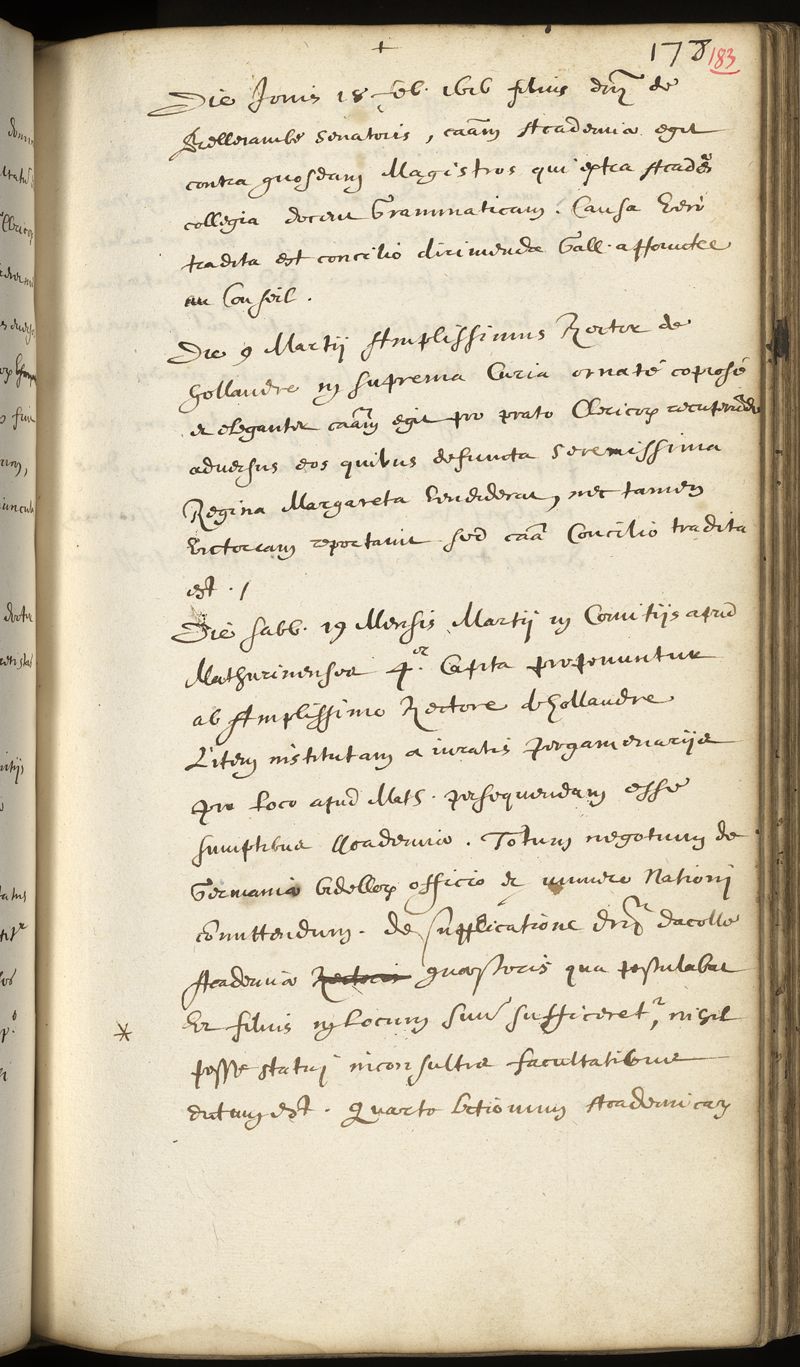 +
178 183
Die Jovis 18 feb. 1616 filius dnj de
Bellejambe Senatoris, caam Academiæ egit
contra quosdam Magistros qui extra Acad
collegia docent Grammaticam. Causa vero
tradita est concilio dirimenda Gall. appointée
au Conseil.
Die 9 Martij Amplissimus Rector de
Hollandre in suprema Curia ornaté copiosé
et eleganter caam egit pro prato Clericor recuperando
adversus eos quibus defuncta Serenissima
Regina Margareta vendiderat, nec tamen
victoriam reportavit sed caa Concilio tradita
est. /
Die sabb. 19 Mensis Martij in Comitijs apud
Mathurinenses 4.or Capita proponuntur
ab Amplissimo Rectore dhollandre
Litem institutam a iuratis pergamenarijs
pro loco apud Math. persequendam esse
sumptibus Academiæ. Totum negotium de
Germaniæ bidellor officio et munere Nationj
comittendum. de supplicatione dnj dacolle
Academiæ Rectoris quæstoris qua postulabat
* Et filius in locum suu sufficeretr, nihil
posse statuj inconsultis facultatibus
dictum est. Quarto lectionum Academicar